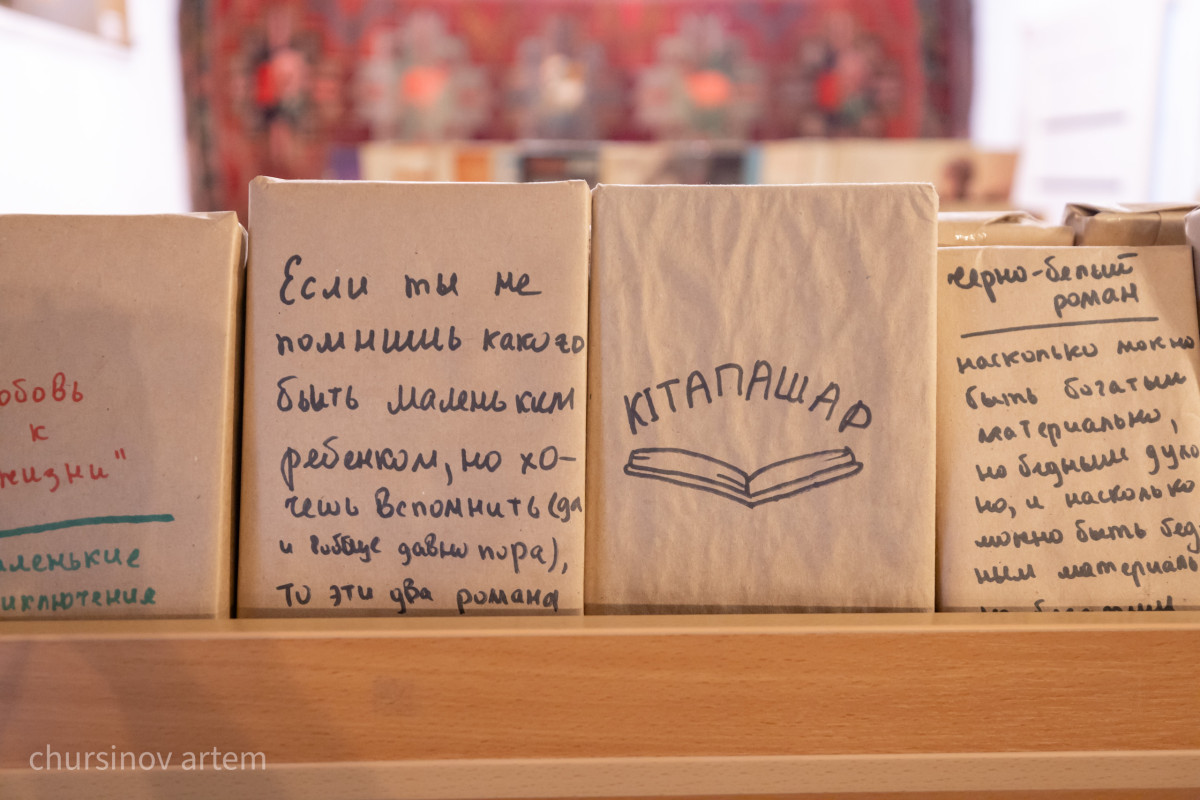 юбовь
к
жизни"
аленькие
иключения
Если ты не
помнишь какого
быть маленьким
ребенком, но хо-
чешь вспомнить (да
и вообще давно пора),
то эти два романа
КІТАПАШАР
черно-белый
роман
насколько можно
быть богатым
материально,
но бедным духо
но, и насколько
можно быть бед
ным материаль
chursinov artem